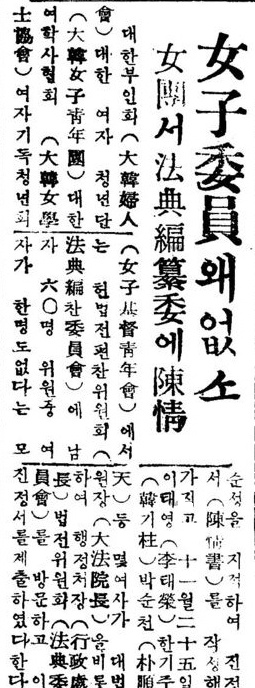 女子委員왜없소
女團서法典編纂委에陳情
대한부인회(大韓婦人
會)대한 여자 청년단
(大韓女子青年團)대한
여학사협회 (大韓女學
士協會)여자기독청년회
(女子基督青年會)에서
는 헌법전편찬위원회(
法典編찬委員會)에 남
자 六○명 위원중 여
자가 한명도없다는 모
순성을 지적하여 진정
서(陳情書)를 작성해
가지고 十一月二十五일
이태영(李太榮)한기주
(韓기柱)박순천(朴順
天)등 몇여사가 대법
원장(大法院長)을비롯
하여 행정처장(行政處
長)법전위원회(法典委
員會)를 방문하고 이
진정서를제출하였다한다